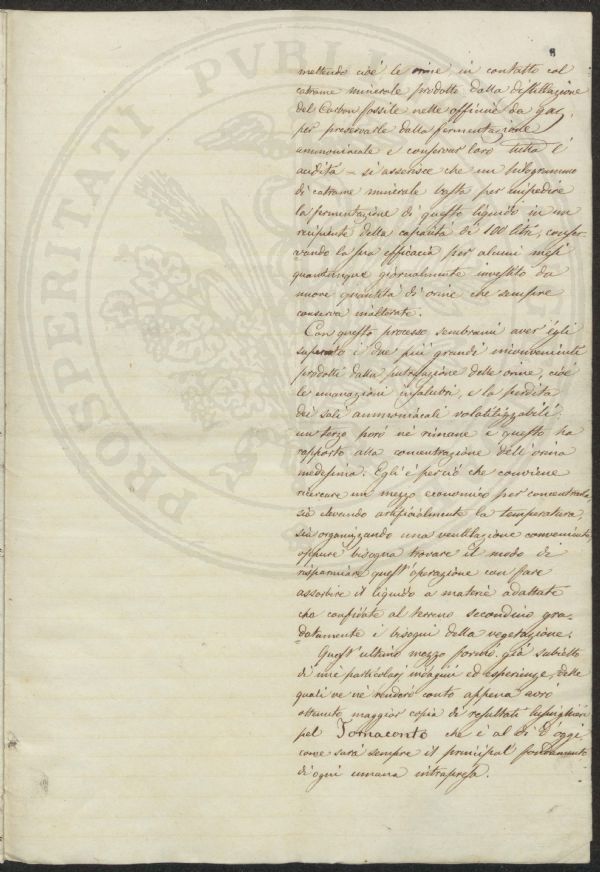 8
mettendo cioè le orine, in contatto col
catrame minerale prodotto dalla distillazione
del Carbon fossile nelle officine da gas,
per preservarle dalla fermentazione
ammoniacale e conservar loro tutta l'
acidità - si asserisce che un kilogrammo
di catrame minerale basta per impedire
la fermentazione di questo liquido in un
recipiente della capacità di 100 litri, conser-
vando la sua efficacia per alcuni mesi
quantunque giornalmente investito da
nuove quantità di orine che sempre
conserva inalterate.
Con questo processo sembrami aver egli
superato i due più grandi inconvenienti
prodotti dalla putrefazione delle orine, cioè
le emanazioni insalubri, e la perdita
dei sali ammoniacali volatilizzabili:
un terzo però nè rimane e questo ha
rapporto alla concentrazione dell'orina
medesima: Egli è perciò che conviene
ricercare un mezzo economico per concentrarla
sia elevando artificialmente la temperatura,
sia organizzando una ventilazione conveniente,
oppure bisogna trovare il modo di
risparmiare quest'operazione con fare
assorbire il liquido a materie adattate
che confidate al terreno secondino gra-
datamente i bisogni della vegetazione.
Quest'ultimo mezzo formò già subietto
di miè particolari indagini ed esperienze, delle
quali ve nè renderò conto appena avrò
ottenuto maggior copia di resultati lusinghieri
pel Tornaconto che è al dì d'oggi
come sarà sempre il principal fondamento
di ogni umana intrapresa.
PROSPERITATI PVBLI